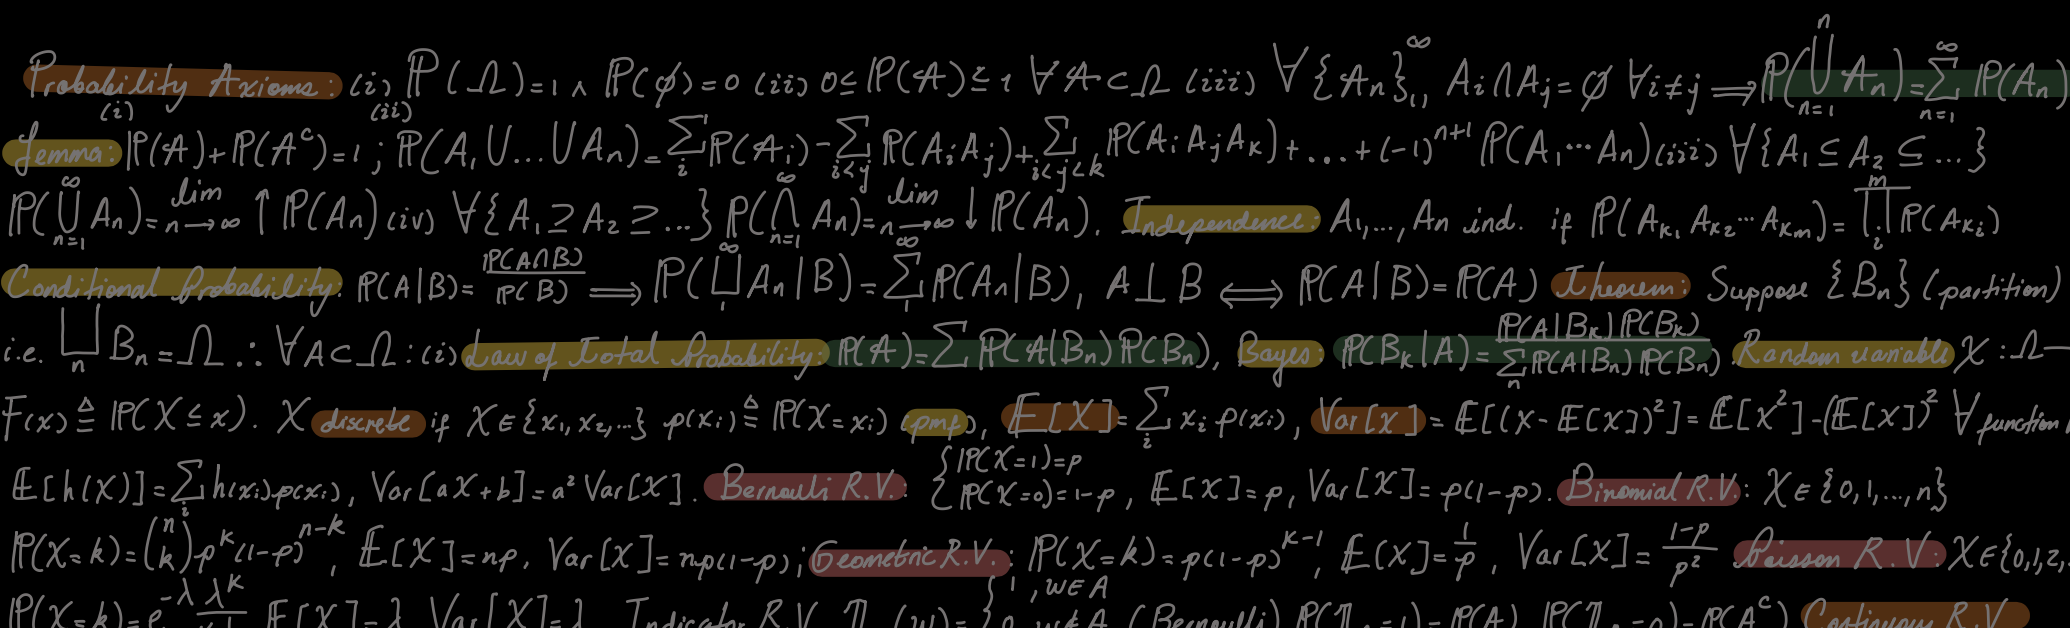 Probability Axioms: (i) ℙ(Ω)=1 ∧ ℙ(∅)=0 (ii) 0≤ℙ(A)≤1 ∀A⊂Ω (iii) ∀{Aₙ}₁^∞, Aᵢ∩Aⱼ=∅ ∀i≠j ⟹ ℙ(⋃_{n=1}^{n} Aₙ)=∑_{n=1}^{∞} ℙ(Aₙ)
Lemma: (i) ℙ(A)+ℙ(A^c)=1 ; (ii) ℙ(A₁∪...∪Aₙ)=∑_i ℙ(Aᵢ)-∑_{i<j} ℙ(AᵢAⱼ)+∑_{i<j<k} ℙ(AᵢAⱼAₖ)+...+(-1)^{n+1} ℙ(A₁...Aₙ) (iii) ∀{A₁⊆A₂⊆...}
ℙ(⋃_{n=1}^{∞} Aₙ)=lim_{n→∞} ↑ℙ(Aₙ) (iv) ∀{A₁≥A₂≥...} ℙ(⋂_{n=1}^{∞} Aₙ)=lim_{n→∞} ↓ℙ(Aₙ). Independence: A₁,...,Aₙ ind. if ℙ(A_{k₁} A_{k₂}...A_{kₘ})=∏_i^m ℙ(A_{kᵢ})
Conditional Probability: ℙ(A|B)=ℙ(A∩B)/ℙ(B) ⟹ ℙ(⊔_1^∞ Aₙ|B)=∑_1^∞ ℙ(Aₙ|B), A⊥B ⟺ ℙ(A|B)=ℙ(A) Theorem: Suppose {Bₙ} (partition)
i.e. ⊔_n Bₙ=Ω ∴ ∀A⊂Ω: (i) Law of Total Probability: ℙ(A)=∑ℙ(A|Bₙ)ℙ(Bₙ), Bayes: ℙ(Bₖ|A)=ℙ(A|Bₖ)ℙ(Bₖ)/∑_n ℙ(A|Bₙ)ℙ(Bₙ) Random variable X:Ω—
F(x)≜ℙ(X≤x). X discrete if X∈{x₁,x₂,...} p(xᵢ)≜ℙ(X=xᵢ) (pmf), 𝔼[X]=∑_i xᵢp(xᵢ), Var[X]=𝔼[(X-𝔼[X])²]=𝔼[X²]-(𝔼[X])² ∀function
𝔼[h(X)]=∑_i h(xᵢ)p(xᵢ), Var[aX+b]=a²Var[X]. Bernoulli R.V.: {ℙ(X=1)=p ℙ(X=0)=1-p, 𝔼[X]=p, Var[X]=p(1-p). Binomial R.V.: X∈{0,1,...,n}
ℙ(X=k)=(n k)p^k(1-p)^{n-k}, 𝔼[X]=np, Var[X]=np(1-p); Geometric R.V.: ℙ(X=k)=p(1-p)^{k-1}, 𝔼[X]=1/p, Var[X]=(1-p)/p² Poisson R.V: X∈{0,1,2,
ℙ(X=k)=e^{-λ} λ^k/k! 𝔼[X]=λ Var[X]=λ Indicator R.V. 𝟙 (w)={1, w∈A 0, w∉A (Bernoulli) ℙ(𝟙 =1)=ℙ(A) ℙ(𝟙 =0)=ℙ(A^c) Continuous R.V